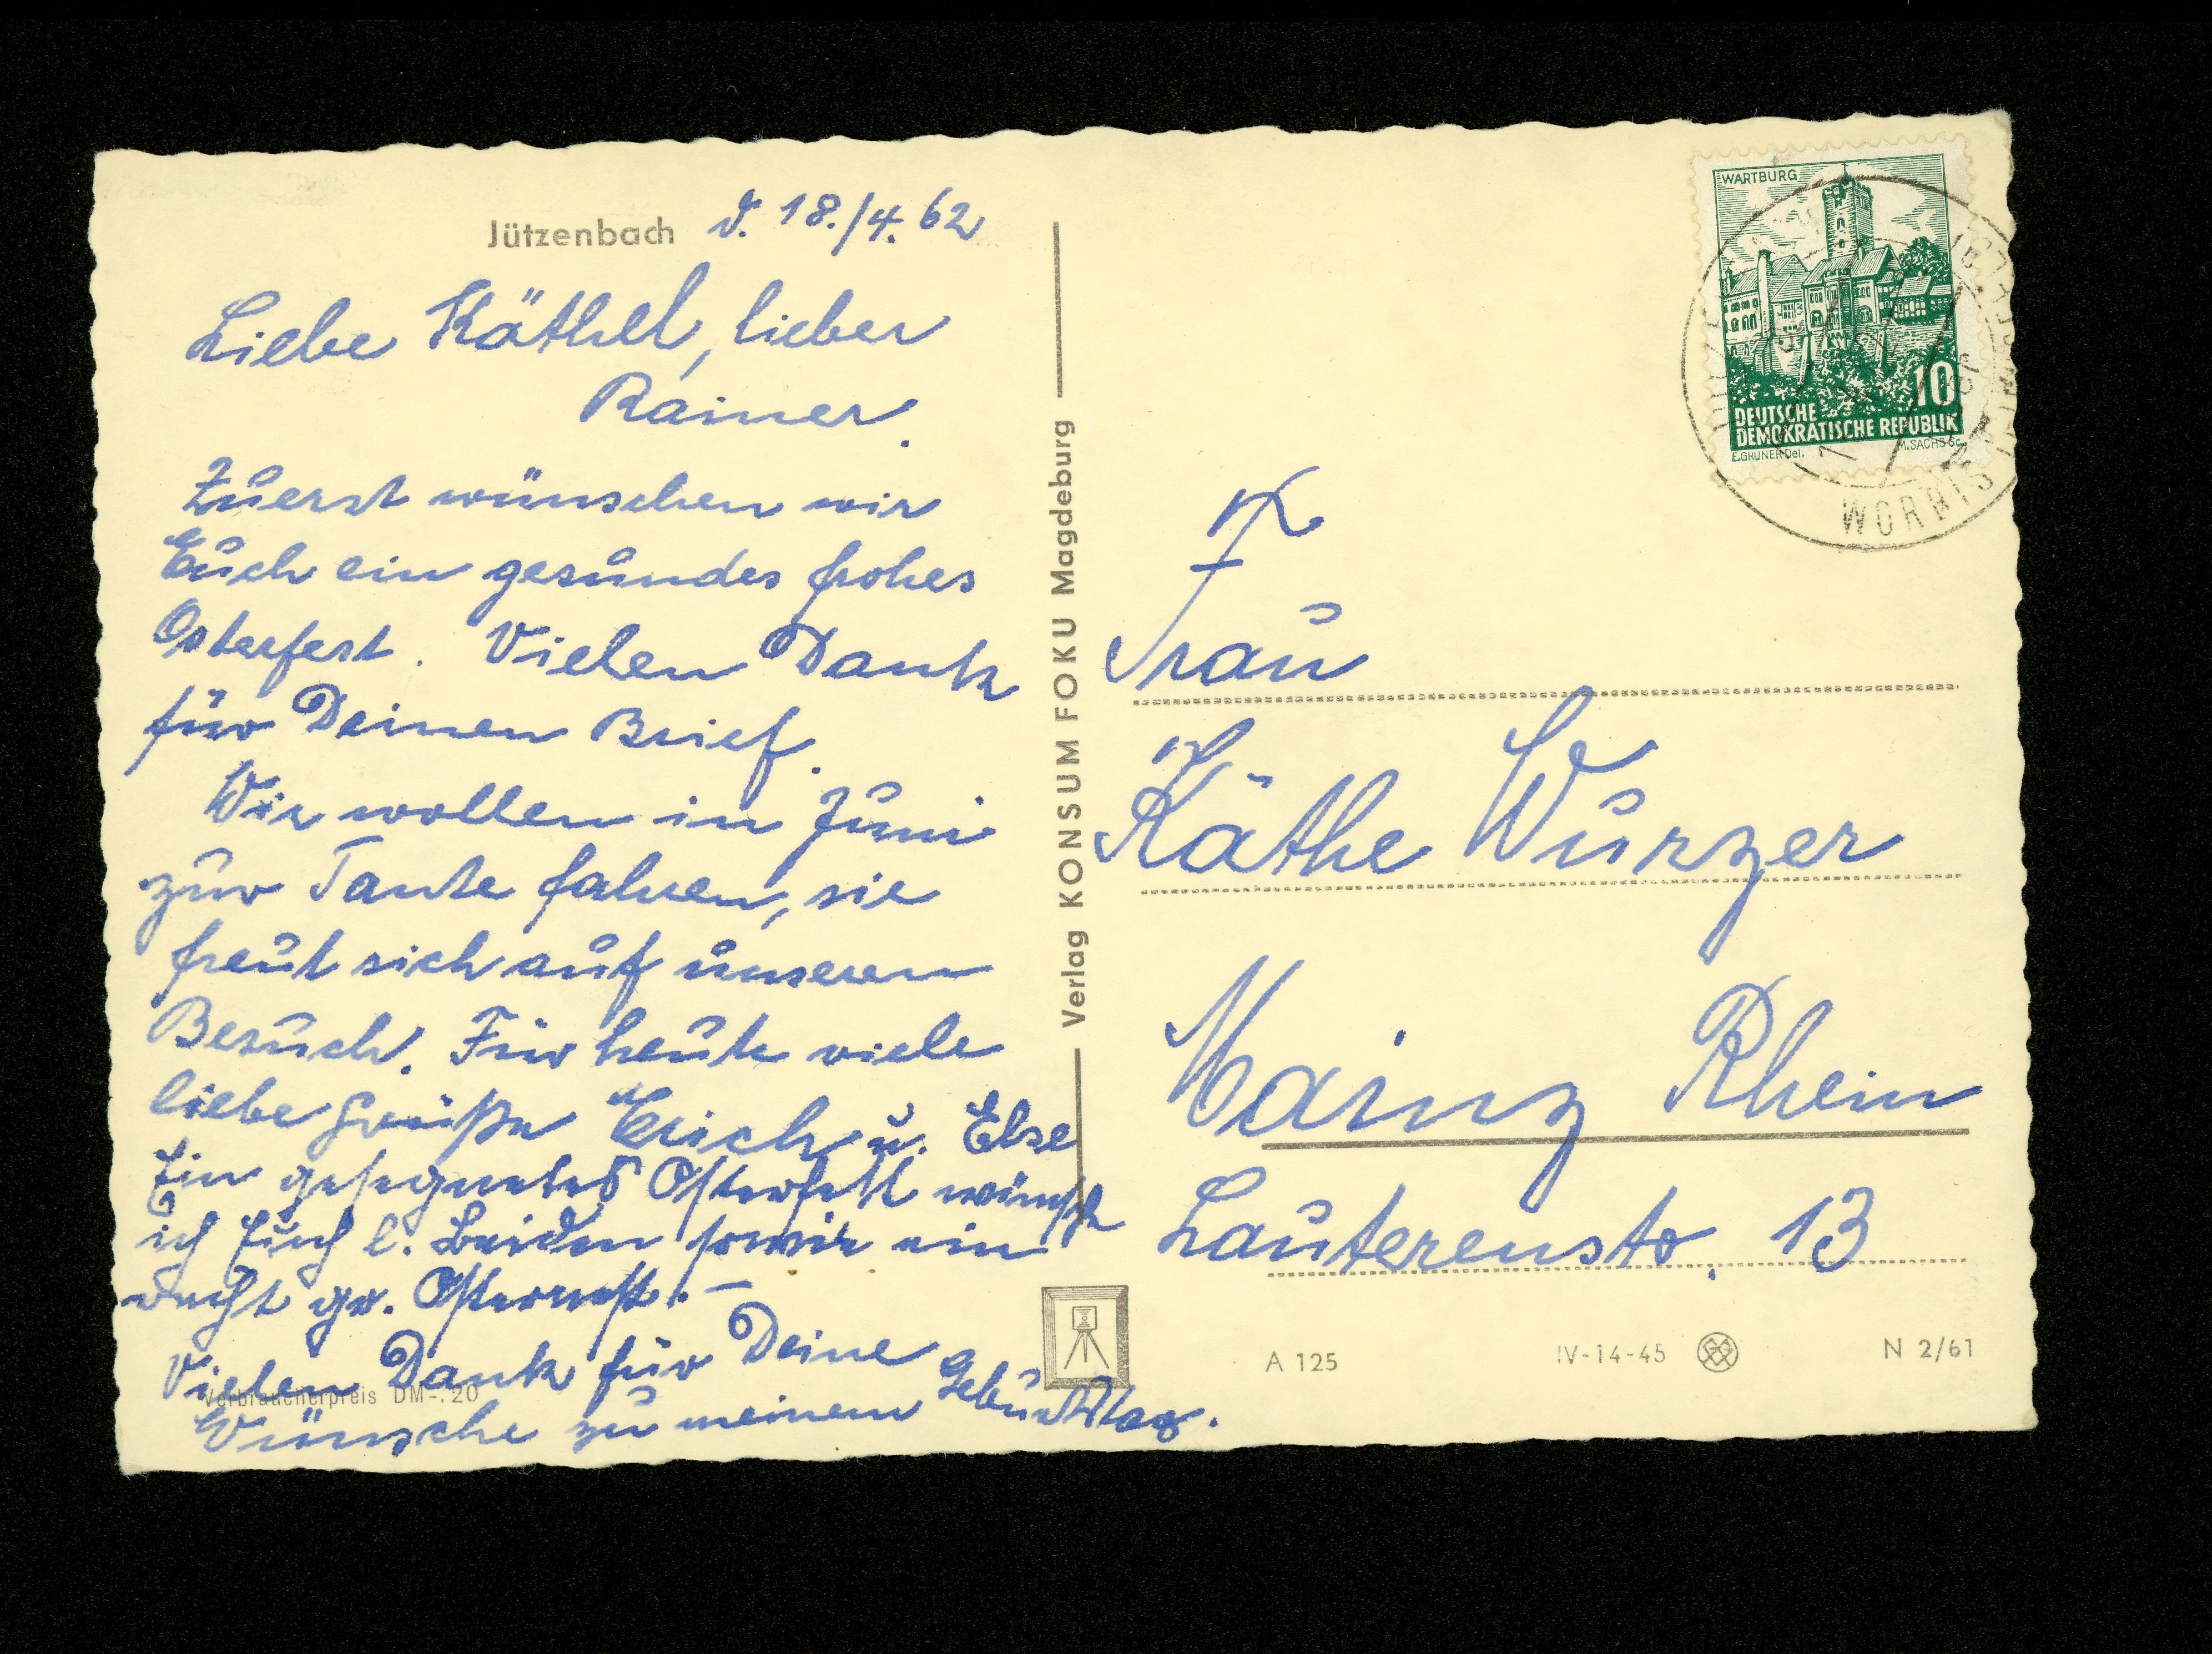 Jützenbach d. 18./4. 62
Liebe Käthel, lieber
Rainer.
Zuerst wünschen wir
Euch ein gesundes frohes
Osterfest. Vielen Dank
für Deinen Brief.
Wir wollen in Juni
zur Tante fahren, sie
freut sich auf unseren
Besuch. Für heute viele
liebe Grüße Erich u. Else
Ein gesegnetes Osterfest wünscht
ich Euch l. Beiden sowie ein
recht gr. Osternest. –
Vielen Dank für Deine
Wünsche zu meinem Geburtstag.
Verbraucherpreis DM -.20
Verlag KONSUM FOKU Magdeburg
WARTBURG
10
DEUTSCHE
DEMOKRATISCHE REPUBLIK
E.GRUNER Del. M.SACHS Sc.
WORBIS
Frau
Käthe Wurzer
Mainz Rhein
Lauterenstr. 13
A 125 IV-14-45 N 2/61